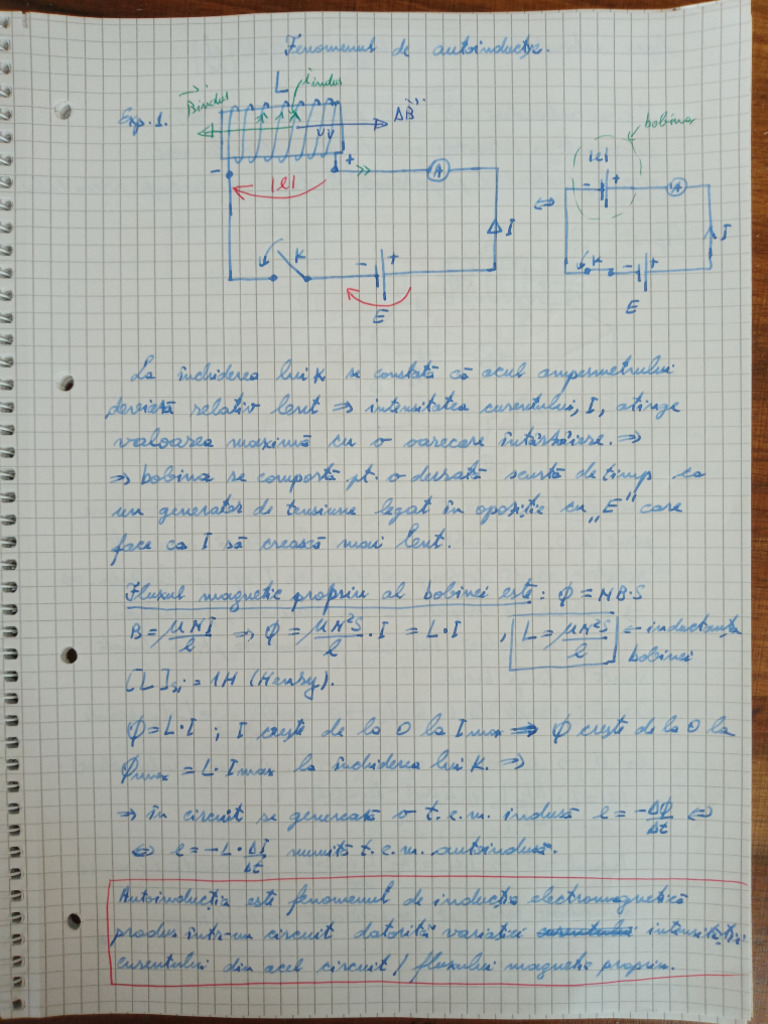 Fenomenul de autoinducție.
Exp. 1.
B⃗indus
L
i indus
ΔB⃗
- +
|e|
A
I
K
- +
E
⇔
bobina
|e|
- +
A
I
K
- +
E
La închiderea lui K se constată că acul ampermetrului
deviază relativ lent ⇒ intensitatea curentului, I, atinge
valoarea maximă cu o oarecare întârziere. ⇒
⇒ bobina se comportă pt. o durată scurtă de timp ca
un generator de tensiune legat în opoziție cu „E" care
face ca I să crească mai lent.
Fluxul magnetic propriu al bobinei este: ϕ = NB·S
B = μNI/l ⇒ ϕ = μN²S/l · I = L·I , L = μN²S/l ← inductanța
bobinei
[L]si = 1H (Henry).
ϕ = L·I ; I crește de la 0 la Imax ⇒ ϕ crește de la 0 la
ϕmax = L·Imax la închiderea lui K. ⇒
⇒ în circuit se generează o t.e.m. indusă e = -Δϕ/Δt ⇔
⇔ e = -L·ΔI/Δt numită t.e.m. autoindusă.
Autoinducția este fenomenul de inducție electromagnetică
produs într-un circuit datorită variației curentului intensității
curentului din acel circuit / fluxului magnetic propriu.